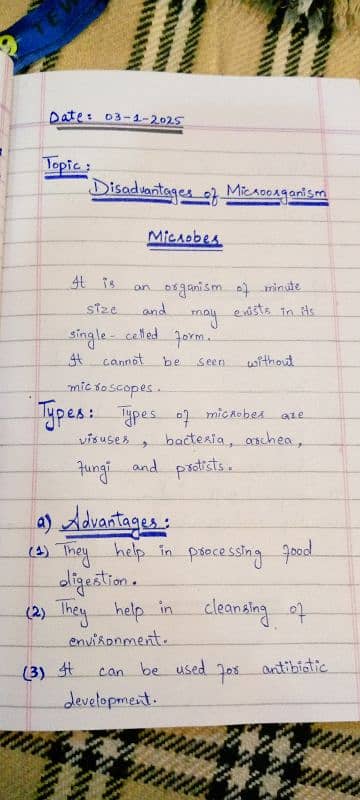 Date: 03-1-2025
Topic:
Disadvantages of Microorganism
Microbes
It is an organism of minute
size and may exists in its
single-celled form.
It cannot be seen without
microscopes.
Types: Types of microbes are
viruses, bacteria, archea,
fungi and protists.
a) Advantages:
(1) They help in processing food
digestion.
(2) They help in cleansing of
environment.
(3) It can be used for antibiotic
development.